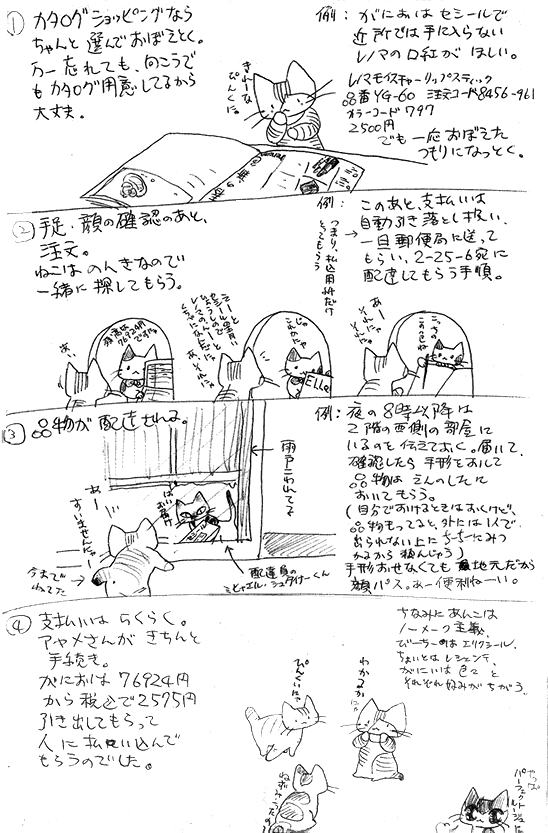 ① カタログショッピングなら
ちゃんと選んでおぼえとく。
万一忘れても、向こうで
もカタログ用意してるから
大丈夫。
きれーな
ぴんくにゃ
例：がにおはセシールで
近所では手に入らない
レノマの口紅がほしい。
レノマモイスチャーリップスティック
品番YG-60 注文コード8456-961
カラーコード797
2500円
でも一応おぼえた
つもりになっとく。
② 手足・顔の確認のあと、
注文。
ねこはのんきなので
一緒に探してもらう。
例：このあと、支払いは
自動引き落とし扱い、
一旦郵便局に送って
もらい、2-25-6宛に
配達してもらう手順。
つまり、払込用件だけ
とってもらう
残高は
76924円
ですにゃ
あい
じゃ
これかにゃ
ELLE
こっちの
この色ね
あー
それにゃ
それにゃ
③ 品物が配達される。
雨戸こわれてる
はい
お届け
あー
すいませんにゃー
今まで
ねてた
配達員の
ミヒャエル・シュタイナーくん
例：夜の8時以降は
2階の西側の部屋に
いるのを伝えておく。届いて、
確認したら手形をおして
品物はえんのしたに
おいてもらう。
(自分でおけるときはおくけど、
品物もってると、外には1人で
出られない上にちーちーにみつ
かるから ねんじゅう)
手形おせなくても地元だから
顔パス。あー便利ねーい。
④ 支払いはらくらく。
アヤメさんがきちんと
手続き。
がにおは76924円
から税込で2575円
引き出してもらって
人に払い込んで
もらうのでした。
ちなみにあんこは
ノーメーク主義、
びーちーのはエリクシール、
ちょいとはレシェンテ、
がにいは色々と
それぞれ好みがちがう。
ぴんくいにゃ
わかるかにゃ
やっぱ
パーフェクト
ルージュに